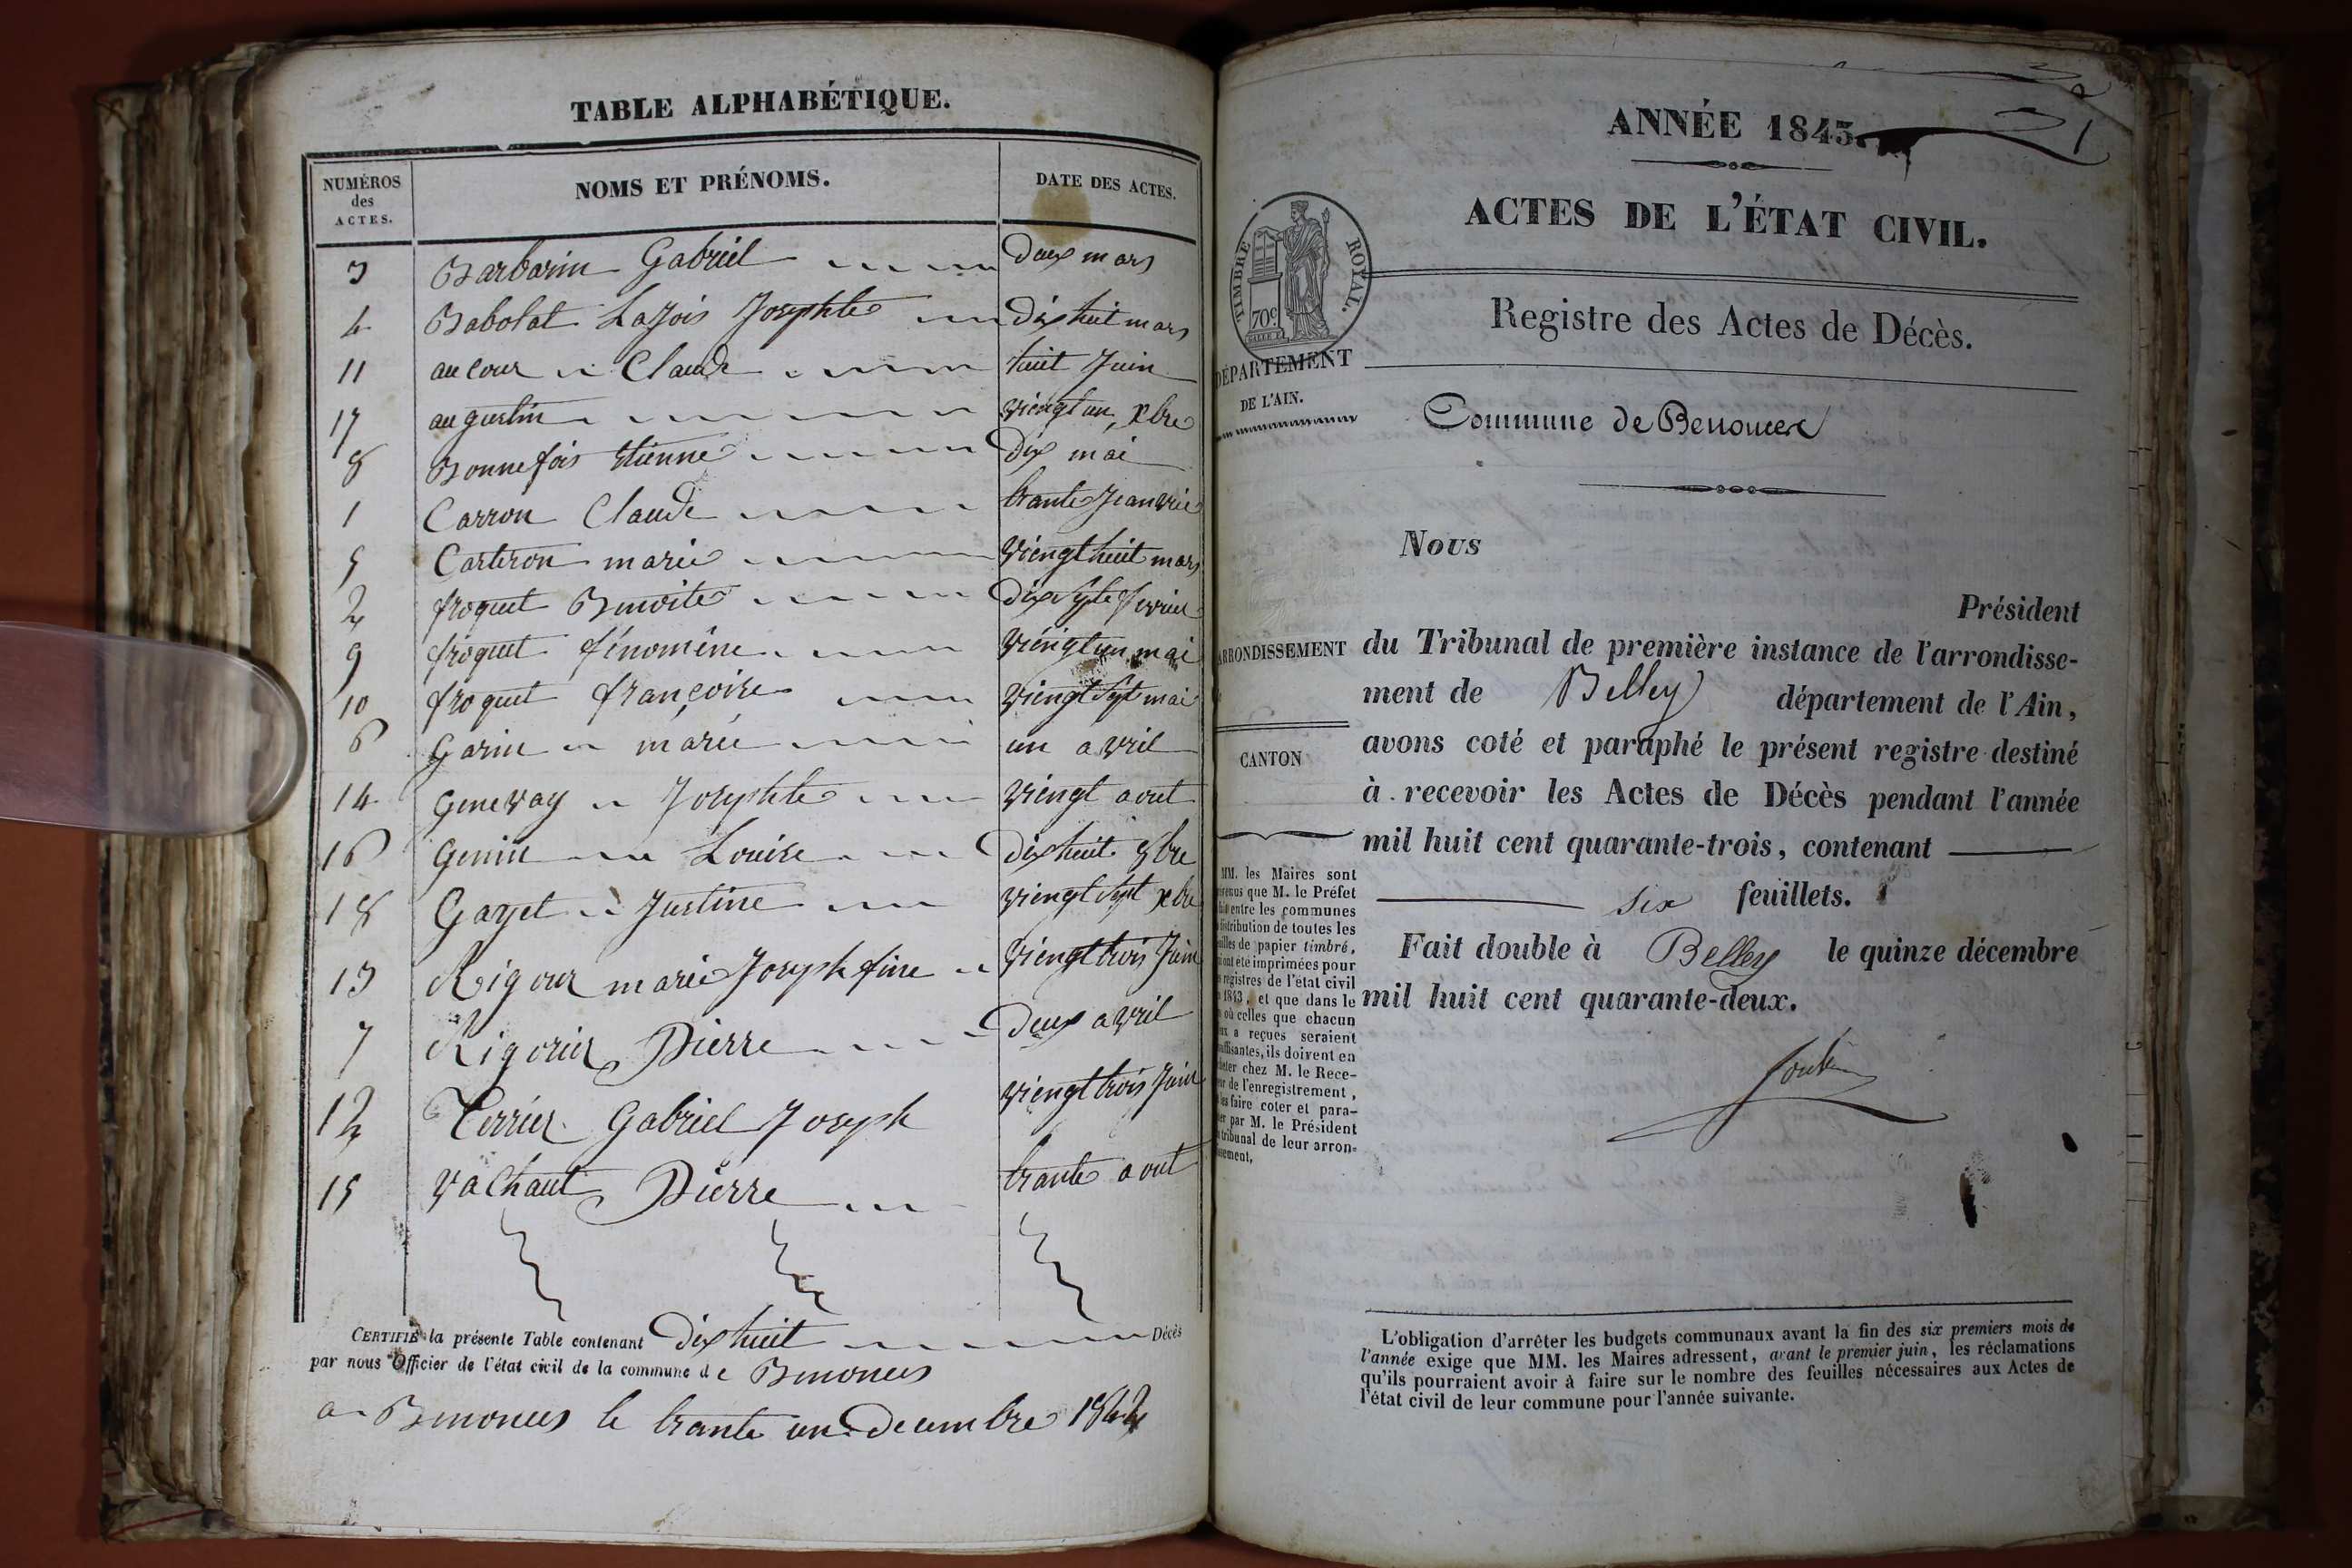 TABLE ALPHABÉTIQUE.
NUMÉROS des ACTES. NOMS ET PRÉNOMS. DATE DES ACTES.
3 Barbarin Gabriel Deux mars
4 Babolat Josephte Dix huit mars
11 aucour Claude huit Juin
17 augustin viengt un xbre
8 Bonnefois Etienne Dix mai
1 Carron Claude trante Jeanvié
5 Carteron marie viengt huit mars
2 froquet Benoite Dix Septe fevrier
9 froquet fénomène viengt un mai
10 froquet françoise viengt Sept mai
6 Garin marie un avril
14 Genevay Josephte viengt aout
16 Genin Louise Dix huit 9bre
18 Gayet Justine viengt Sept xbre
13 Rigour marie Josephfine viengt trois Juin
7 Rigorier Pierre Deux avril
12 Terrier Gabriel Joseph viengt trois Juin
15 vachaut Pierre trante aout
CERTIFIÉ la présente Table contenant Dix huit Décès
par nous Officier de l'état civil de la commune de Benonces
a Benonces le trante un Decembre 1842
ANNÉE 1843.
ACTES DE L'ÉTAT CIVIL.
TIMBRE ROYAL.
70c
Registre des Actes de Décès.
DÉPARTEMENT
DE L'AIN.
Commune de Benonces
Nous
Président
ARRONDISSEMENT
du Tribunal de première instance de l'arrondisse-
ment de Belley département de l'Ain,
avons coté et paraphé le présent registre destiné
CANTON
à recevoir les Actes de Décès pendant l'année
mil huit cent quarante-trois, contenant
six feuillets.
Fait double à Belley le quinze décembre
mil huit cent quarante-deux.
MM. les Maires sont
que M. le Préfet
entre les communes
distribution de toutes les
de papier timbré,
ont été imprimées pour
registres de l'état civil
1843, et que dans le
où celles que chacun
a reçues seraient
ils doivent en
chez M. le Rece-
de l'enregistrement,
les faire coter et para-
par M. le Président
tribunal de leur arron-
L'obligation d'arrêter les budgets communaux avant la fin des six premiers mois de
l'année exige que MM. les Maires adressent, avant le premier juin, les réclamations
qu'ils pourraient avoir à faire sur le nombre des feuilles nécessaires aux Actes de
l'état civil de leur commune pour l'année suivante.